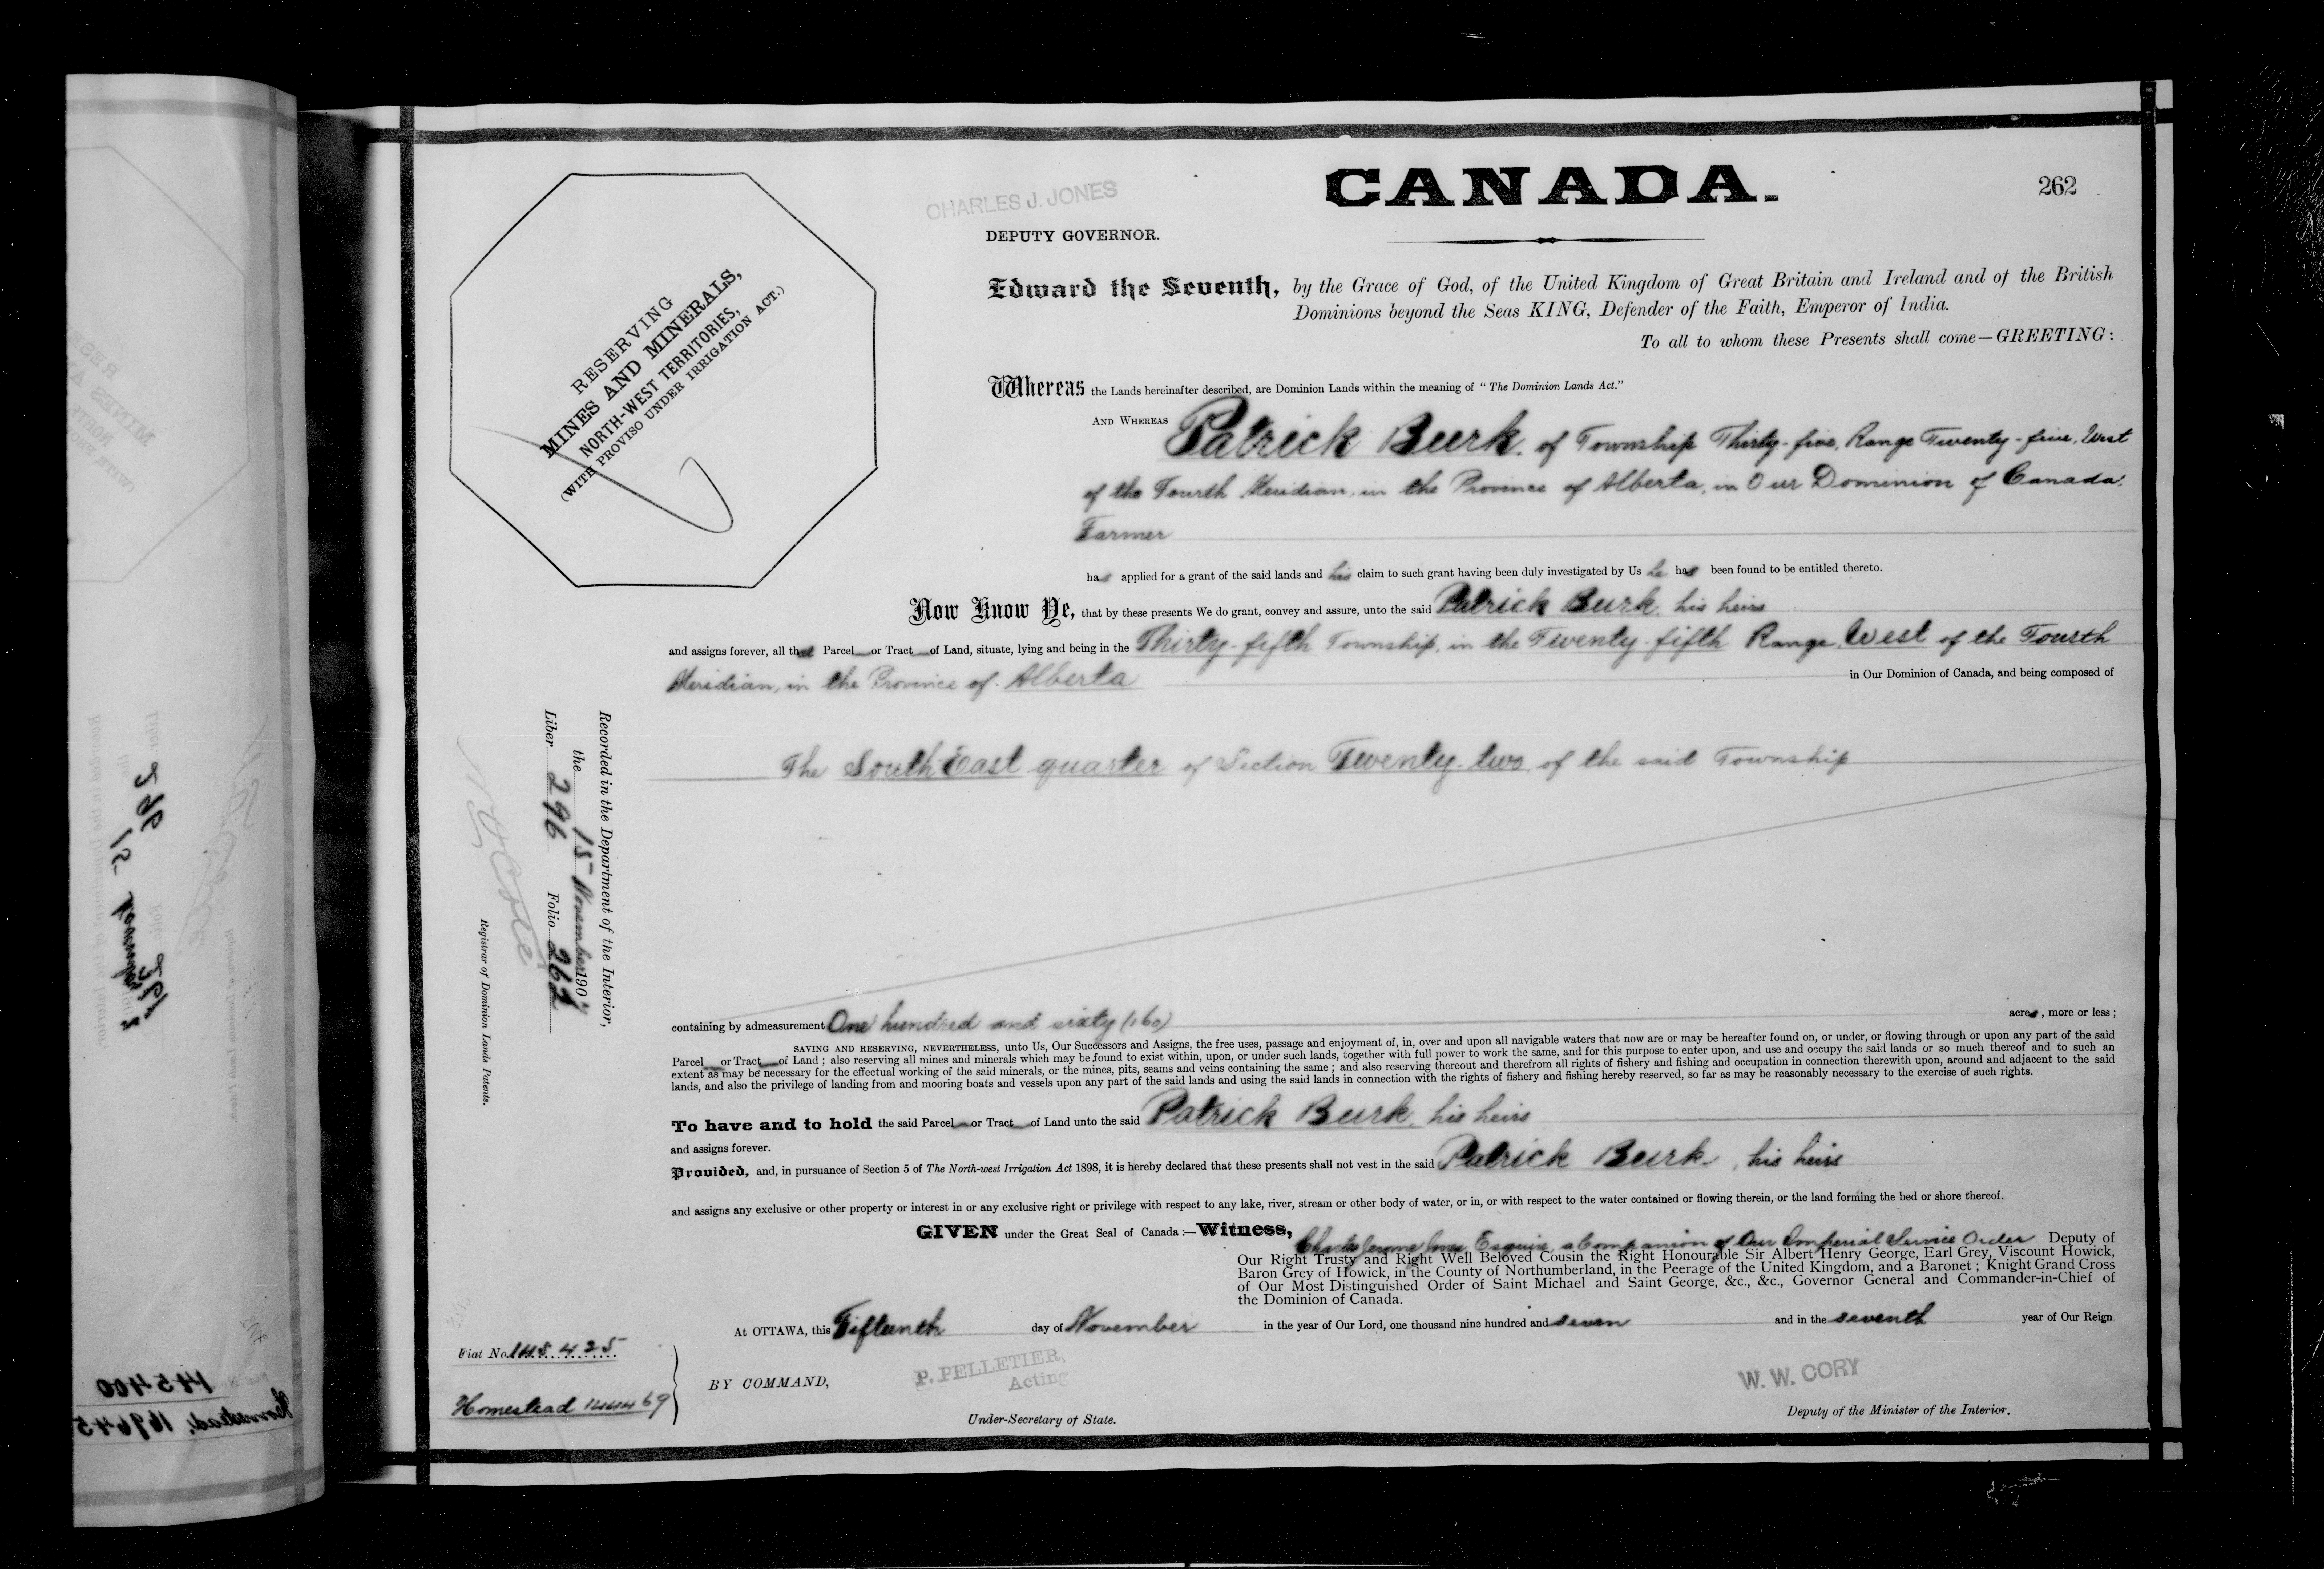 CANADA.
262
CHARLES J. JONES
DEPUTY GOVERNOR.
RESERVING
MINES AND MINERALS,
NORTH-WEST TERRITORIES,
(WITH PROVISO UNDER IRRIGATION ACT.)
Edward the Seventh, by the Grace of God, of the United Kingdom of Great Britain and Ireland and of the British
Dominions beyond the Seas KING, Defender of the Faith, Emperor of India.
To all to whom these Presents shall come—GREETING:
Whereas the Lands hereinafter described, are Dominion Lands within the meaning of "The Dominion Lands Act."
AND WHEREAS Patrick Burk, of Township Thirty-five, Range Twenty-five, West
of the Fourth Meridian, in the Province of Alberta, in Our Dominion of Canada,
Farmer
has applied for a grant of the said lands and his claim to such grant having been duly investigated by Us he has been found to be entitled thereto.
Now Know Ye, that by these presents We do grant, convey and assure, unto the said Patrick Burk, his heirs
and assigns forever, all that Parcel or Tract of Land, situate, lying and being in the Thirty-fifth Township, in the Twenty-fifth Range, West of the Fourth
Meridian, in the Province of Alberta in Our Dominion of Canada, and being composed of
The South East quarter of Section Twenty-two, of the said Township
Recorded in the Department of the Interior,
the 15 November 1907
Liber 296 Folio 262
Registrar of Dominion Lands Patents.
containing by admeasurement One hundred and sixty (160) acres, more or less;
SAVING AND RESERVING, NEVERTHELESS, unto Us, Our Successors and Assigns, the free uses, passage and enjoyment of, in, over and upon all navigable waters that now are or may be hereafter found on, or under, or flowing through or upon any part of the said
Parcel or Tract of Land; also reserving all mines and minerals which may be found to exist within, upon, or under such lands, together with full power to work the same, and for this purpose to enter upon, and use and occupy the said lands or so much thereof and to such an
extent as may be necessary for the effectual working of the said minerals, or the mines, pits, seams and veins containing the same; and also reserving thereout and therefrom all rights of fishery and fishing and occupation in connection therewith upon, around and adjacent to the said
lands, and also the privilege of landing from and mooring boats and vessels upon any part of the said lands and using the said lands in connection with the rights of fishery and fishing hereby reserved, so far as may be reasonably necessary to the exercise of such rights.
To have and to hold the said Parcel or Tract of Land unto the said Patrick Burk, his heirs
and assigns forever.
Provided, and, in pursuance of Section 5 of The North-west Irrigation Act 1898, it is hereby declared that these presents shall not vest in the said Patrick Burk, his heirs
and assigns any exclusive or other property or interest in or any exclusive right or privilege with respect to any lake, river, stream or other body of water, or in, or with respect to the water contained or flowing therein, or the land forming the bed or shore thereof.
GIVEN under the Great Seal of Canada:—Witness, Charles Jerome Jones Esquire, a Companion of Our Imperial Service Order Deputy of
Our Right Trusty and Right Well Beloved Cousin the Right Honourable Sir Albert Henry George, Earl Grey, Viscount Howick,
Baron Grey of Howick, in the County of Northumberland, in the Peerage of the United Kingdom, and a Baronet; Knight Grand Cross
of Our Most Distinguished Order of Saint Michael and Saint George, &c., &c., Governor General and Commander-in-Chief of
the Dominion of Canada.
At OTTAWA, this Fifteenth day of November in the year of Our Lord, one thousand nine hundred and seven and in the seventh year of Our Reign
Fiat No. 145425
Homestead 144469
BY COMMAND,
P. PELLETIER,
Acting
Under-Secretary of State.
W. W. CORY
Deputy of the Minister of the Interior.